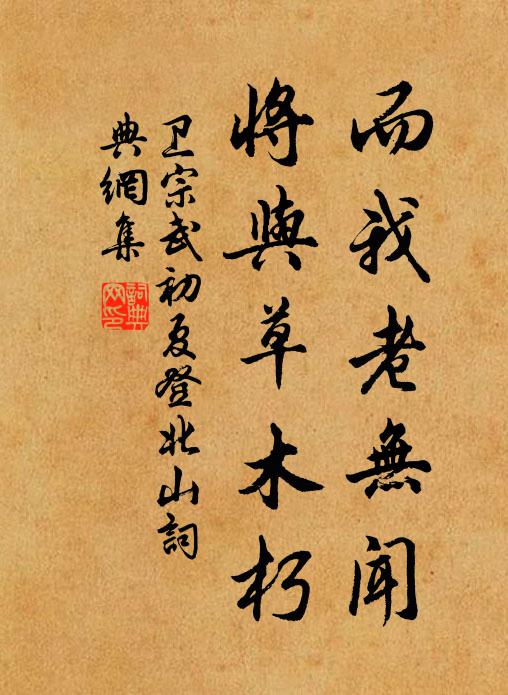 而我老無聞
將與草木朽
卫宗武初夏登北山詞
典網集
詞典網印